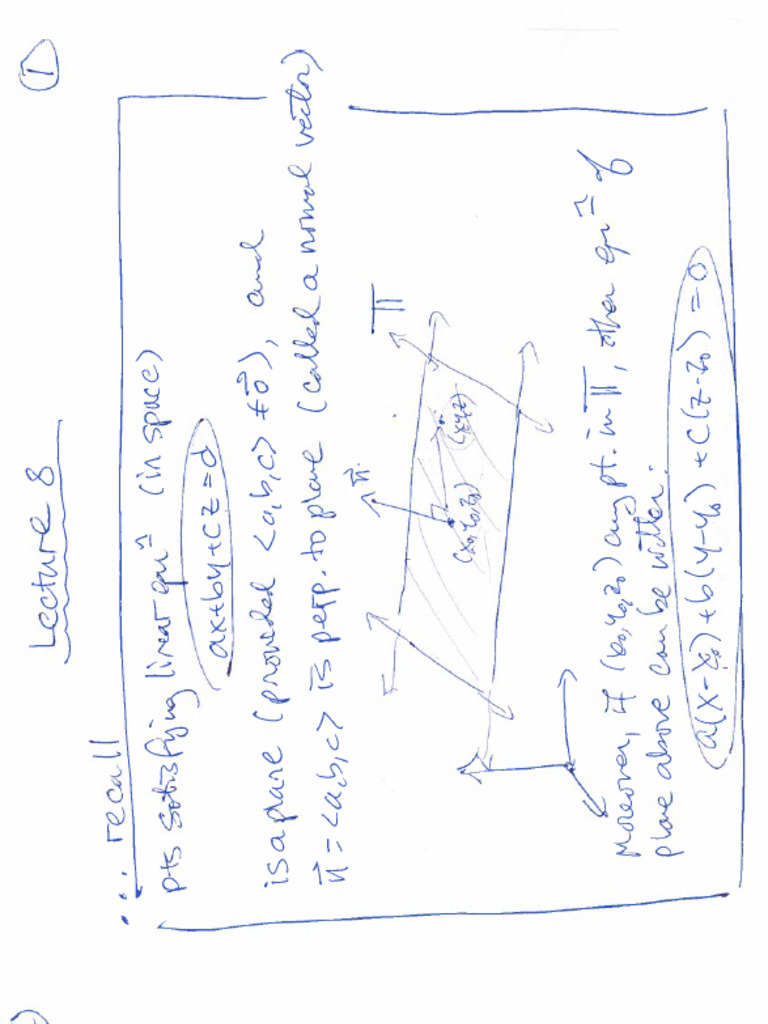 Lecture 8
①
... recall
pts satisfying linear eqn (in space)
ax+by+cz=d
is a plane (provided <a,b,c> ≠ 0⃗), and
n⃗ = <a,b,c> is perp. to plane (called a normal vector)
n⃗
Π
(x₀,y₀,z₀)
(x,y,z)
Moreover, if (x₀,y₀,z₀) any pt. in Π, then eqn of
plane above can be written:
a(x-x₀)+b(y-y₀)+c(z-z₀)=0